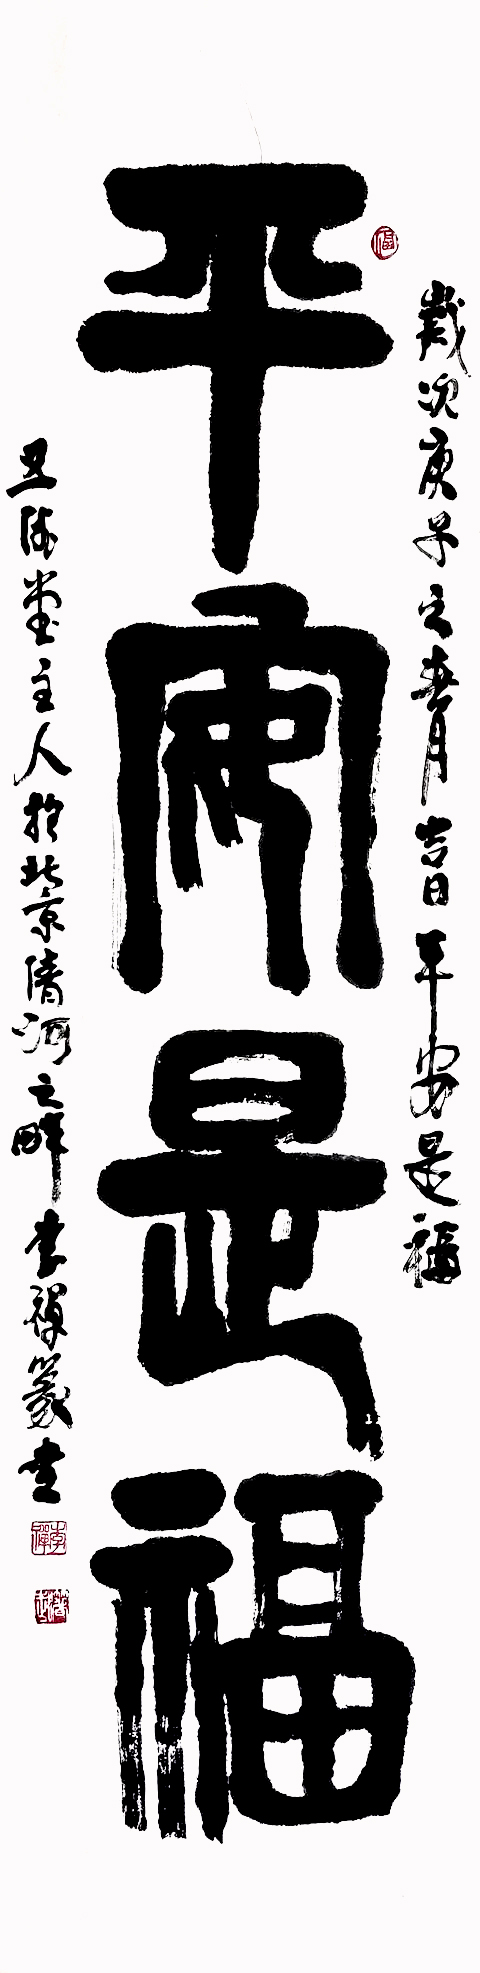 平安是福
歲次庚子之春月吉日平安是福
堂主人於北京清河之畔李禪篆書
福
李禪